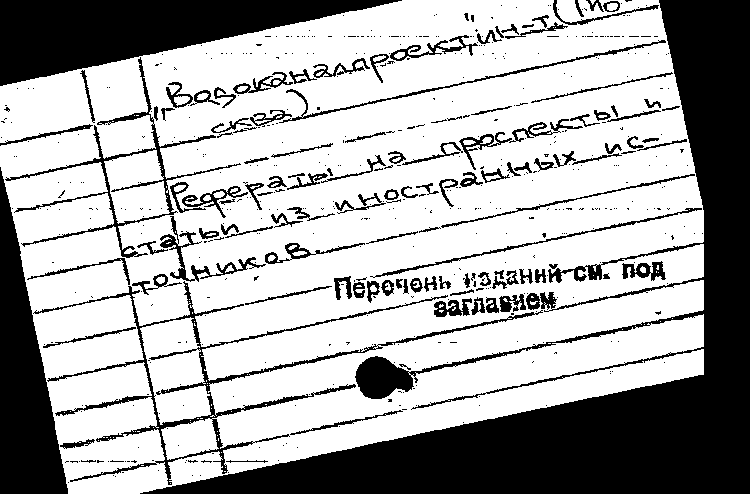 „Водоканалпроект", ин-т. (Мо-
сква).
Рефераты на проспекты и
статьи из иностранных ис-
точников.
Перечень изданий см. под
заглавием